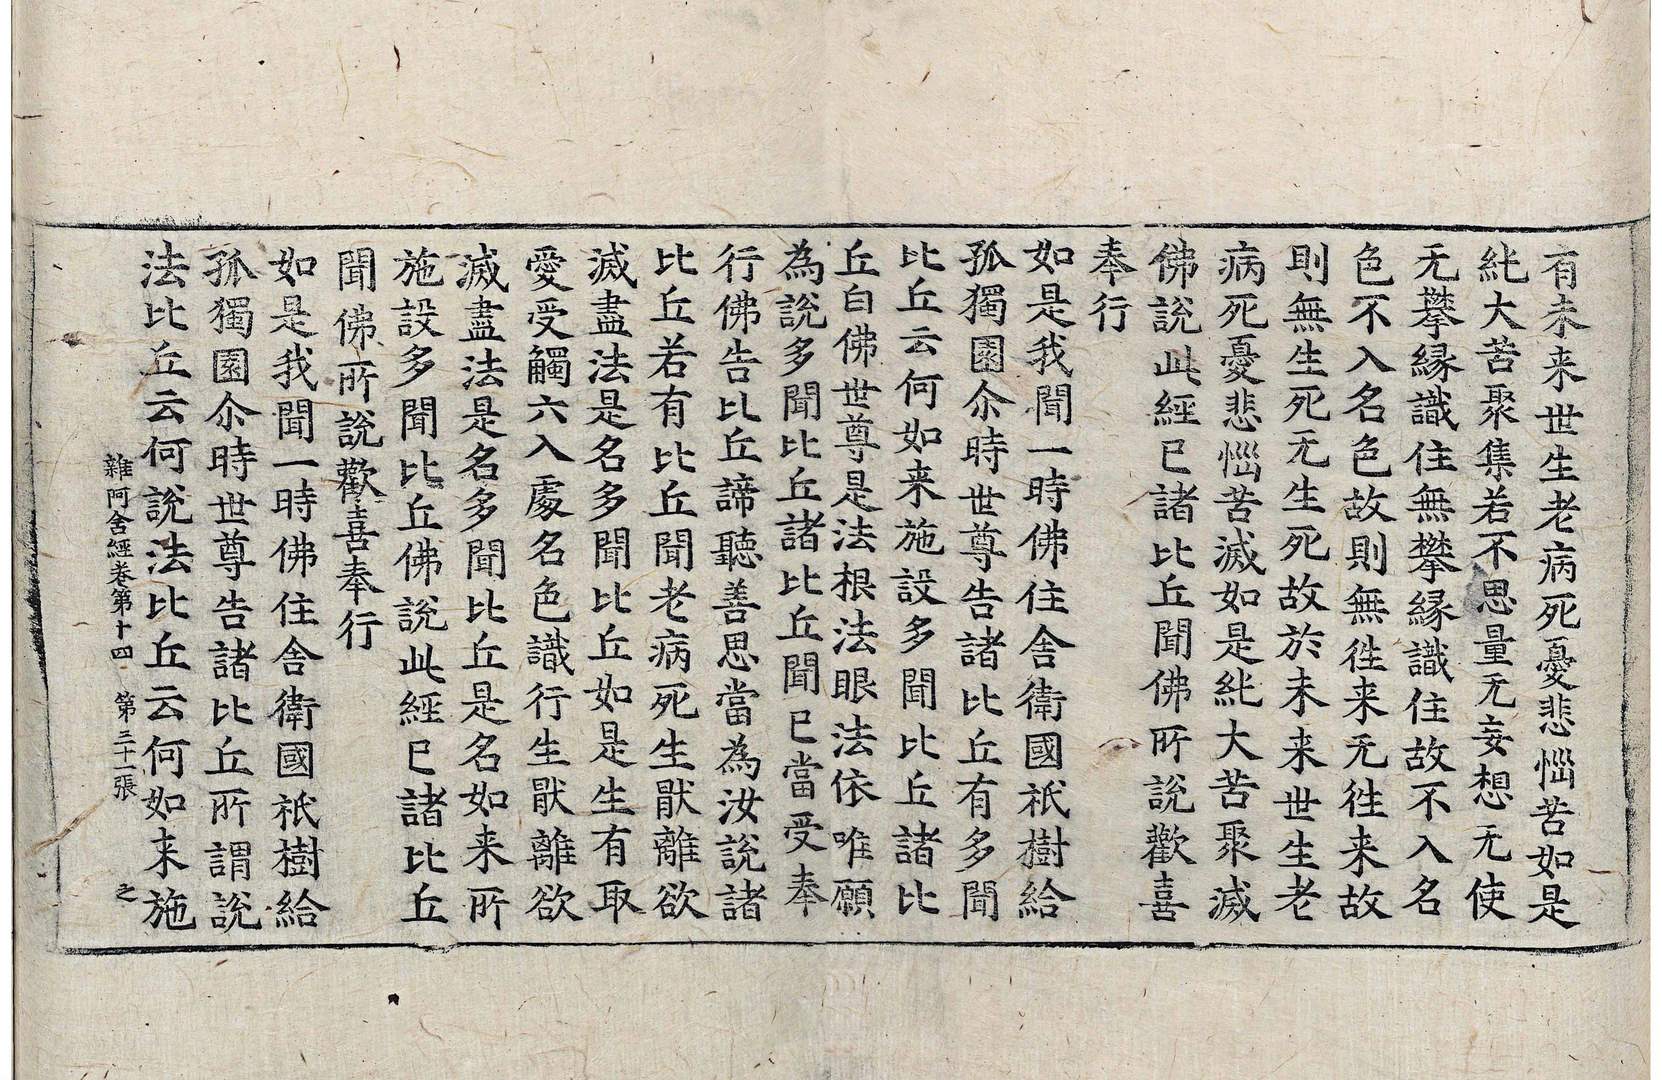 有未来世生老病死憂悲惱苦如是
純大苦聚集若不思量无妄想无使
无攀緣識住無攀緣識住故不入名
色不入名色故則無徃来无徃来故
則無生死无生死故於未来世生老
病死憂悲惱苦滅如是純大苦聚滅
佛說此經已諸比丘聞佛所說歡喜
奉行
如是我聞一時佛住舍衛國祇樹給
孤獨園尒時世尊告諸比丘有多聞
比丘云何如来施設多聞比丘諸比
丘白佛世尊是法根法眼法依唯願
為說多聞比丘諸比丘聞已當受奉
行佛告比丘諦聽善思當為汝說諸
比丘若有比丘聞老病死生猒離欲
滅盡法是名多聞比丘如是生有取
愛受觸六入處名色識行生猒離欲
滅盡法是名多聞比丘是名如来所
施設多聞比丘佛說此經已諸比丘
聞佛所說歡喜奉行
如是我聞一時佛住舍衛國祇樹給
孤獨園尒時世尊告諸比丘所謂說
法比丘云何說法比丘云何如来施
雜阿含經卷第十四 第三十一張 之